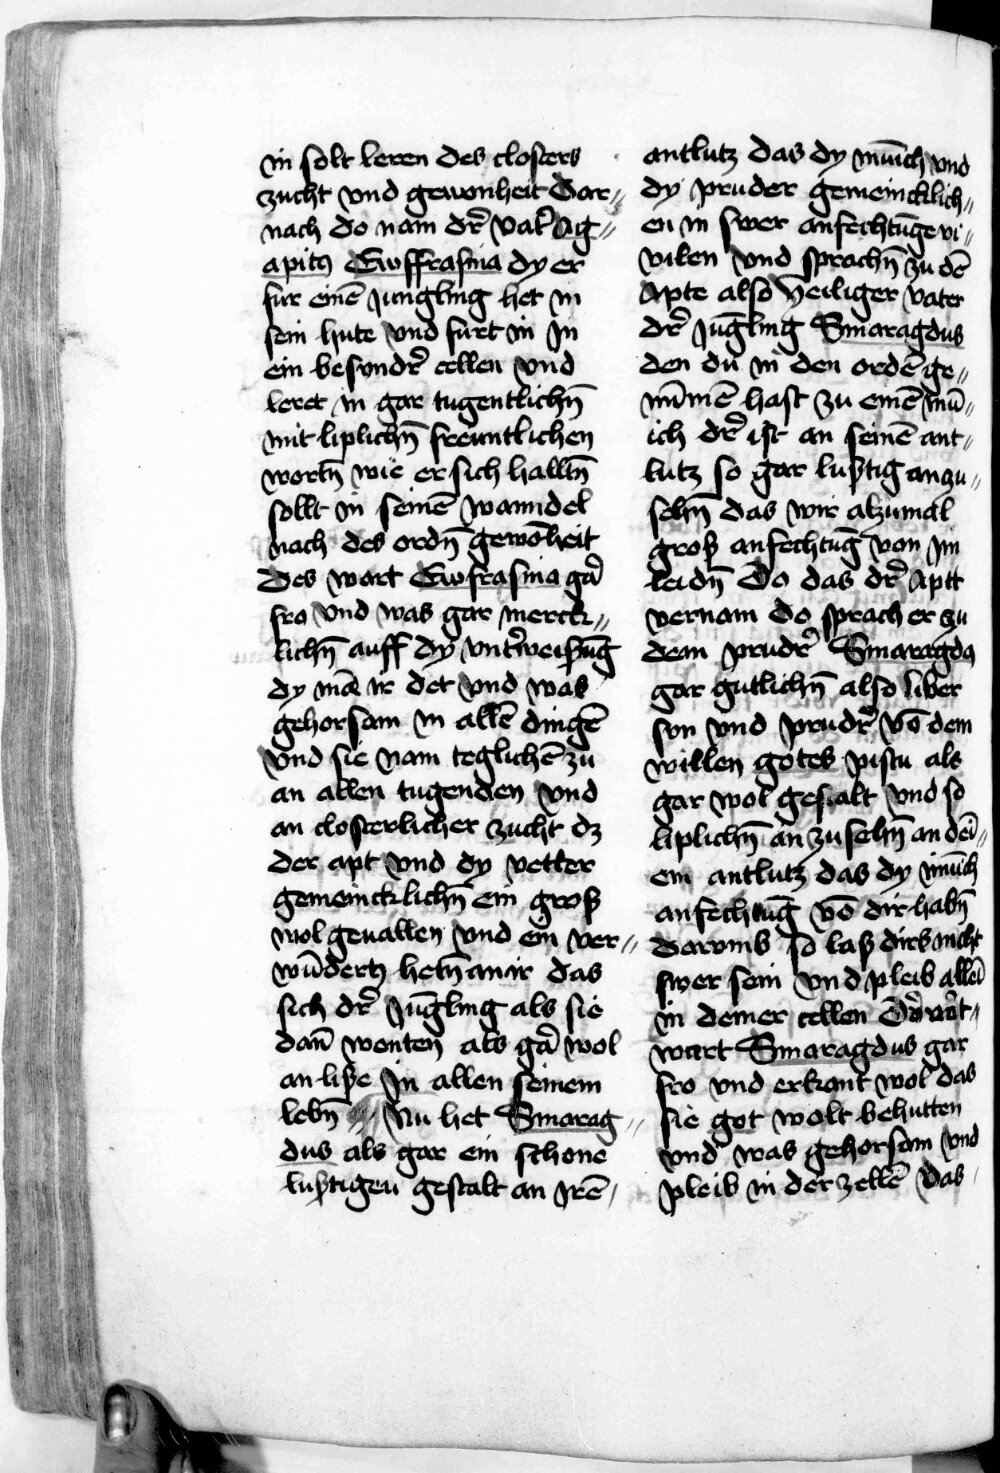 in solt leren des closters
zucht vnd gewonheit Dar〃
nach do nam dr̄ vat̄ Ag〃
apitꝫ Ewffrasina dy er
fur einē jungling het in
sein hute vnd furt in jn
ein besvndr̄ cellen vnd
leret in gar tugentlichn̄
mit liplichn̄ freuntlichen
wortn̄ wie er sich halltn̄
sollt in seinē wanndel
nach des ordn̄ gewōheit
Des wart Ewfrasina gā
fro vnd was gar merck〃
lichn̄ auff dy vnt̄weisūg
dy mā ir det vnd was
gehorsam in allē dingē
vnd sie nam teglichē zu
an allen tugenden vnd
an closterlicher zucht dz
der apt vnd dy vetter
gemeincklichn̄ ein groß
wolgeuallen vnd ein ver〃
wūdertꝫ hetn̄ an ir das
sich dr̄ Jūgling als sie
dan̄ wonten als gā wol
an liße jn allen seinem
lebn̄ Nu het Smarag〃
dus als gar ein schone
lustigen gestalt an jrē〃
antlutz das dy mūich vnd
dy pruder gemeincklich〃
en in swer anfechtūge vi〃
vilen vnd sprachn̄ zu dē
Apte also heiliger vater
dr̄ Jūgling Smaragdus
den du in den ordē ge〃
nūmē hast zu einē mū〃
ich dr̄ ist an seinē ant〃
lutz so gar lustig anzu〃
sehn̄ das wir alzumal
groß anfechtūg von jm
leidn̄ Do das dr̄ Aptt
vernam do sprach er zu
dem prudr̄ Smaragdꝫ
gar gutlichn̄ also liber
sun vnd prudr̄ vō dem
willen gotes pistu als
gar wol gestalt vnd so
liplichn̄ an zusehn̄ an dei〃
em antlutz das dy mūich
anfechtūg vō dir habn̄
Darvmb so laß dirs nicht
swer sein vnd pleib allei
in deiner cellen Do ant〃
wurt Smaragdus gar
fro vnd erkant wol das
sie got wolt behutten
vnd was gehorsam vnd
pleib in der zellē Das